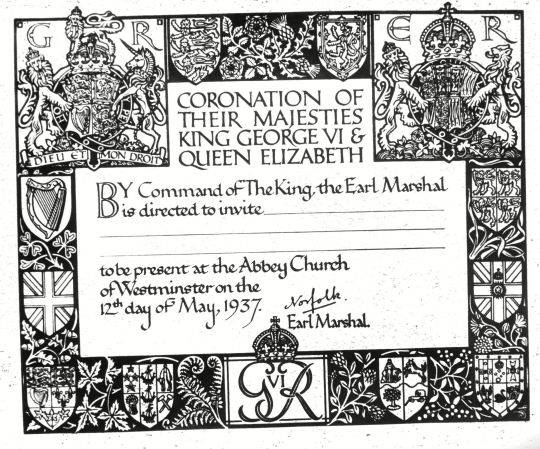 G R
E R
DIEU ET MON DROIT
CORONATION OF
THEIR MAJESTIES
KING GEORGE VI &
QUEEN ELIZABETH
BY Command of The King, the Earl Marshal
is directed to invite
to be present at the Abbey Church
of Westminster on the
12th day of May, 1937.
Norfolk.
Earl Marshal.
G VI R